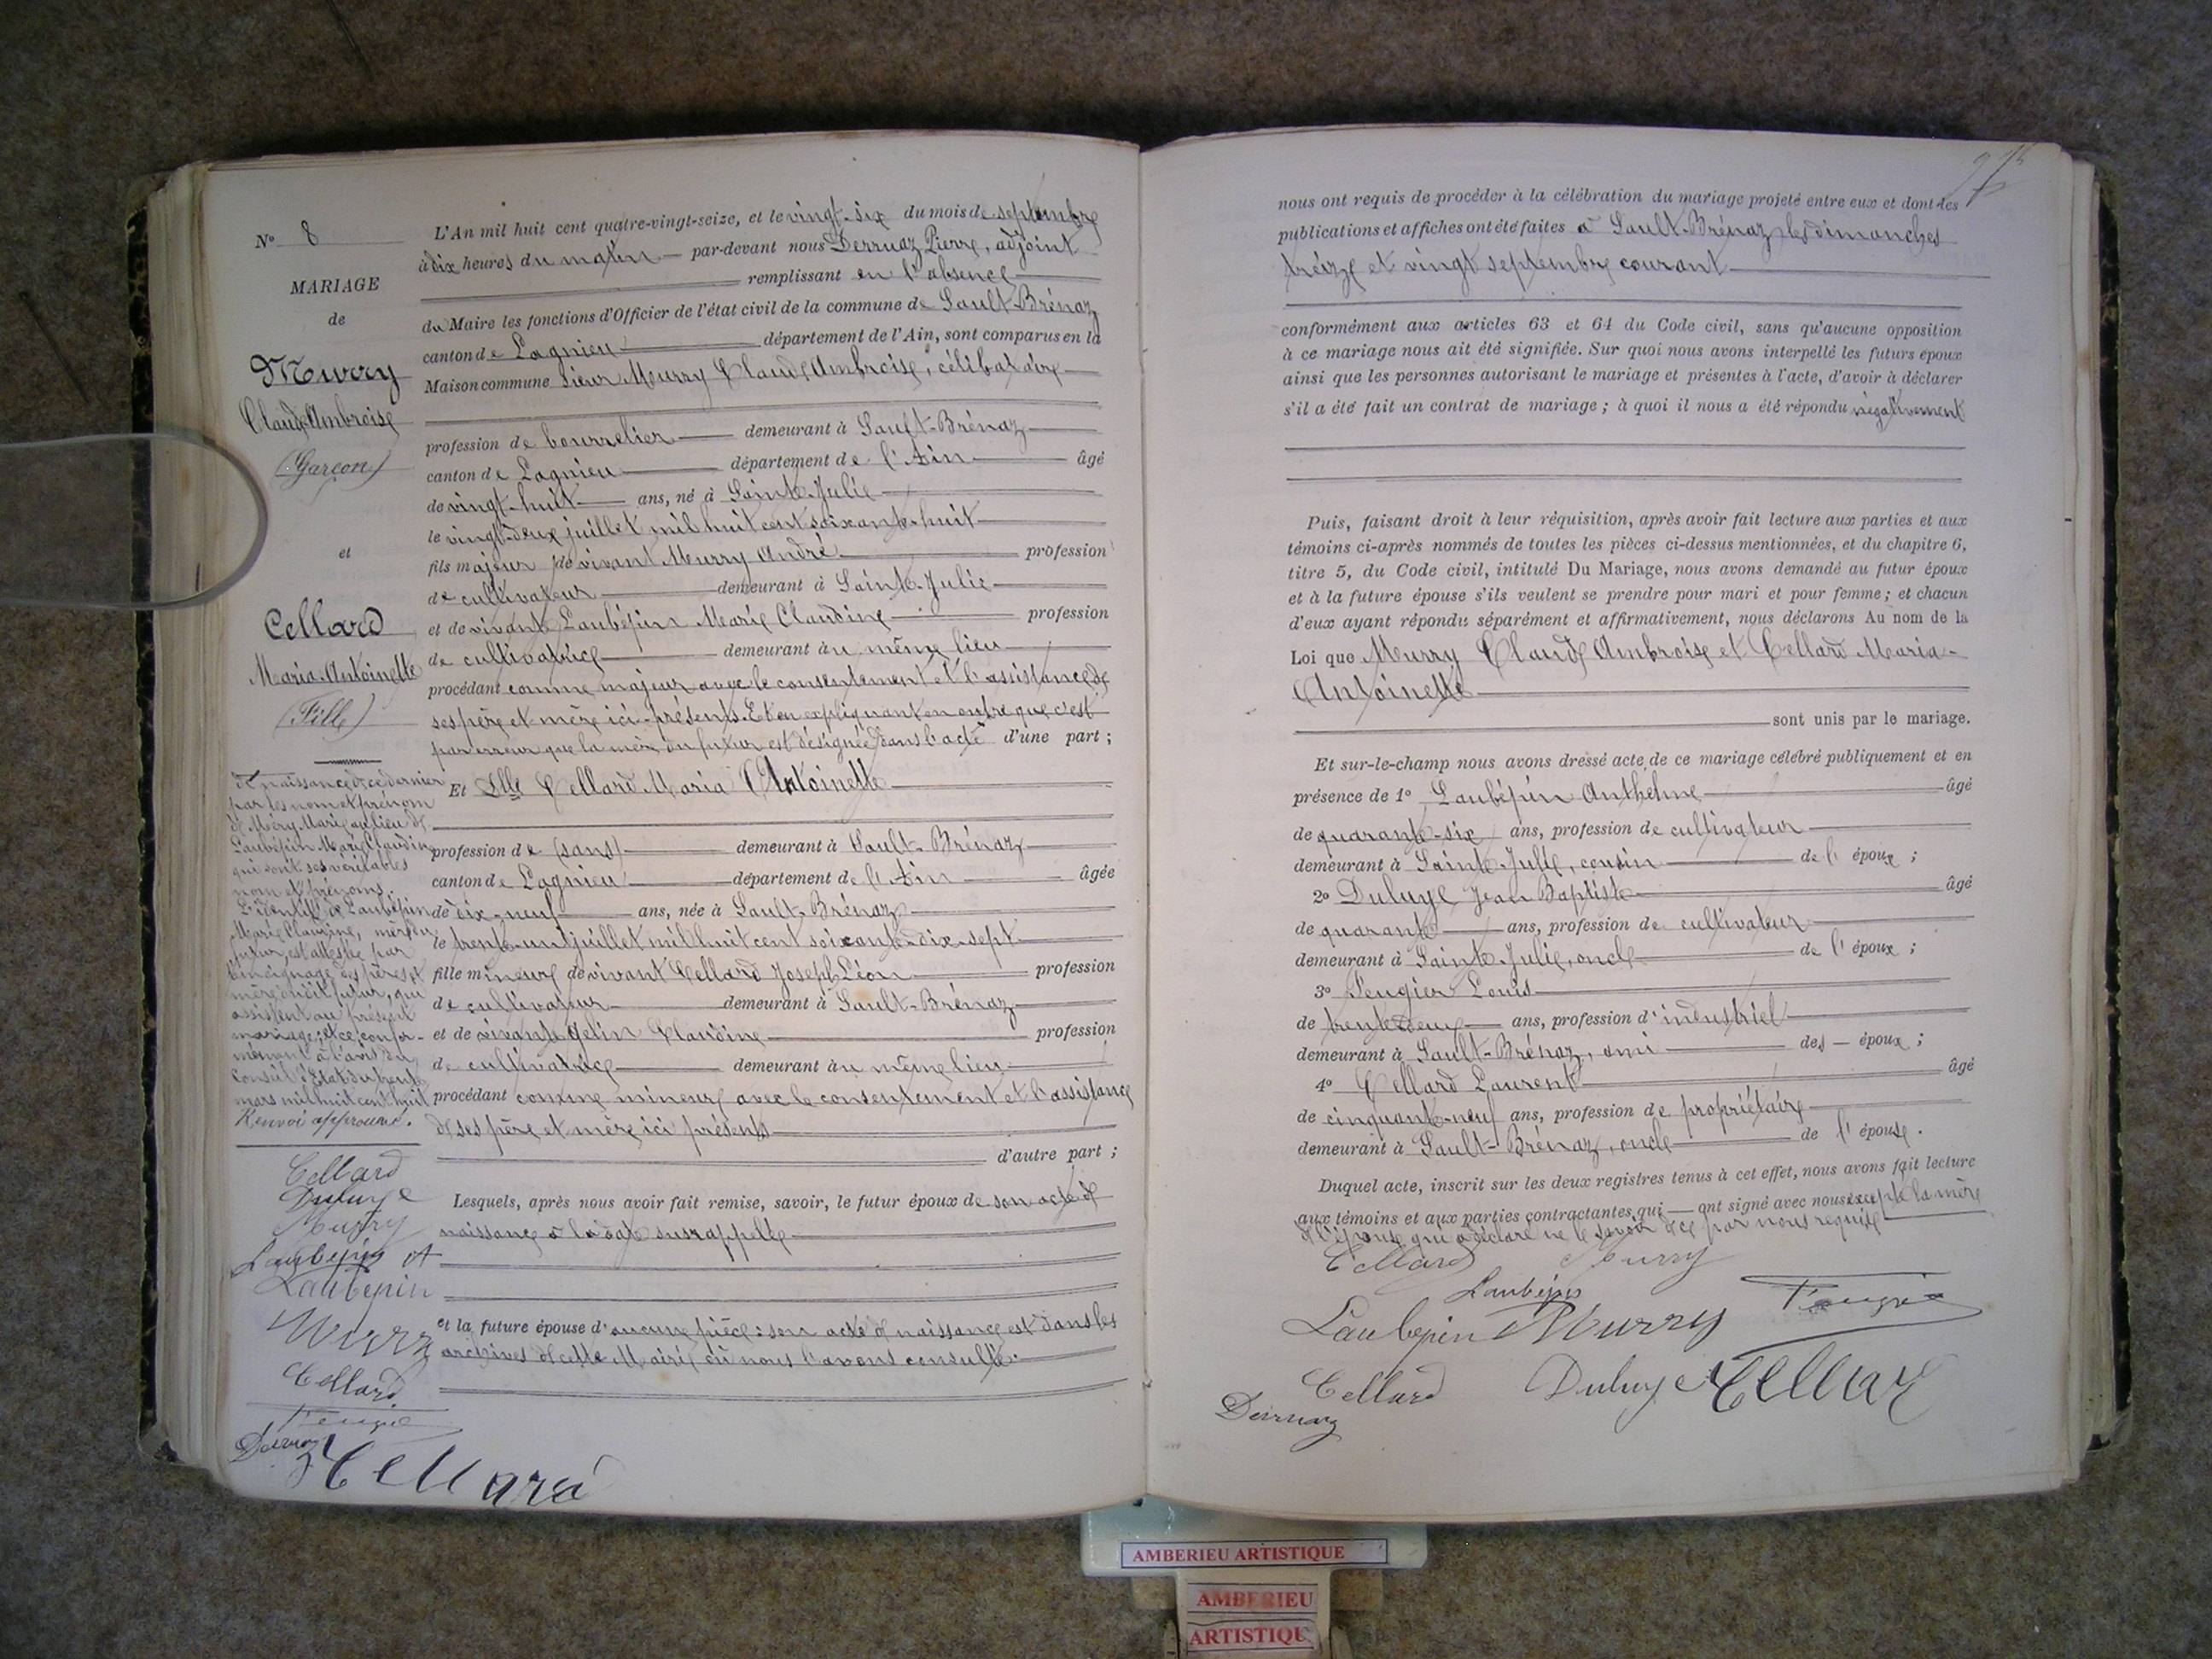 N° 8
MARIAGE
de
Murry
Claude Ambroise
(Garçon)
et
Cellard
Maria Antoinette
(Fille)
L'An mil huit cent quatre-vingt-seize, et le vingt-six du mois de septembre
à dix heures du matin par-devant nous Derruaz Pierre, adjoint
remplissant en l'absence
du Maire les fonctions d'Officier de l'état civil de la commune de Sault-Brénaz
canton de Lagnieu département de l'Ain, sont comparus en la
Maison commune sieur Murry Claude Ambroise, célibataire
profession de bourrelier demeurant à Sault-Brénaz
canton de Lagnieu département de l'Ain âgé
de vingt-huit ans, né à Sainte-Julie
le vingt-deux juillet mil huit cent soixante-huit
fils majeur de vivant Murry André profession
de cultivateur demeurant à Sainte-Julie
et de vivante Laubépin Marie Claudine profession
de cultivatrice demeurant au même lieu
procédant comme majeur avec le consentement et l'assistance de
ses père et mère ici-présents. Et en expliquant en outre que c'est
par erreur que la mère du futur est désignée dans l'acte d'une part ;
de naissance de ce dernier
par les nom et prénom
de Méry Marie au lieu de
Laubépin Marie Claudine
qui sont ses véritables
nom et prénoms.
L'identité de Laubépin
Marie Claudine, mère du
futur, est attestée par
témoignage des père et
mère dudit futur, qui
assistent au présent
mariage ; et ce confor-
mément à l'avis du
conseil d'Etat du trente
mars mil huit cent huit
Renvoi approuvé.
Et Dlle Cellard Maria Antoinette
profession de (sans) demeurant à Sault-Brénaz
canton de Lagnieu département de l'Ain âgée
de dix-neuf ans, née à Sault-Brénaz
le trente-un juillet mil huit cent soixante-dix-sept
fille mineure de vivant Cellard Joseph Léon profession
de cultivateur demeurant à Sault-Brénaz
et de vivante Gelin Claudine profession
de cultivatrice demeurant au même lieu
procédant comme mineure avec le consentement et l'assistance
de ses père et mère ici présents
d'autre part ;
Lesquels, après nous avoir fait remise, savoir, le futur époux de son acte de
naissance à la date susrappelée
et la future épouse d'aucune pièce : son acte de naissance est dans les
archives de cette Mairie où nous l'avons consulté.
Cellard
Duluye
Murry
Laubépin A
Laubepin
Murry
Cellard
Derruaz
Cellard
nous ont requis de procéder à la célébration du mariage projeté entre eux et dont les
publications et affiches ont été faites à Sault-Brénaz les dimanches
treize et vingt septembre courant
conformément aux articles 63 et 64 du Code civil, sans qu'aucune opposition
à ce mariage nous ait été signifiée. Sur quoi nous avons interpellé les futurs époux
ainsi que les personnes autorisant le mariage et présentes à l'acte, d'avoir à déclarer
s'il a été fait un contrat de mariage ; à quoi il nous a été répondu négativement
Puis, faisant droit à leur réquisition, après avoir fait lecture aux parties et aux
témoins ci-après nommés de toutes les pièces ci-dessus mentionnées, et du chapitre 6,
titre 5, du Code civil, intitulé Du Mariage, nous avons demandé au futur époux
et à la future épouse s'ils veulent se prendre pour mari et pour femme ; et chacun
d'eux ayant répondu séparément et affirmativement, nous déclarons Au nom de la
Loi que Murry Claude Ambroise et Cellard Maria-
Antoinette
sont unis par le mariage.
Et sur-le-champ nous avons dressé acte de ce mariage célébré publiquement et en
présence de 1° Laubépin Anthelme âgé
de quarante-six ans, profession de cultivateur
demeurant à Sainte-Julie, cousin de l'époux ;
2° Duluye Jean Baptiste âgé
de quarante ans, profession de cultivateur
demeurant à Sainte-Julie, oncle de l'époux ;
3° Feugier Louis
de trente-deux ans, profession d'industriel
demeurant à Sault-Brénaz, ami des époux ;
4° Cellard Laurent âgé
de cinquante-neuf ans, profession de propriétaire
demeurant à Sault-Brénaz, oncle de l'épouse.
Duquel acte, inscrit sur les deux registres tenus à cet effet, nous avons fait lecture
aux témoins et aux parties contractantes qui ont signé avec nous excepté la mère
de l'épouse qui a déclaré ne le savoir de ce par nous requise
Cellard Murry
Laubépin
Laubepin Murry Feugier
Cellard Duluye Cellard
Derruaz
AMBERIEU ARTISTIQUE
AMBERIEU
ARTISTIQU